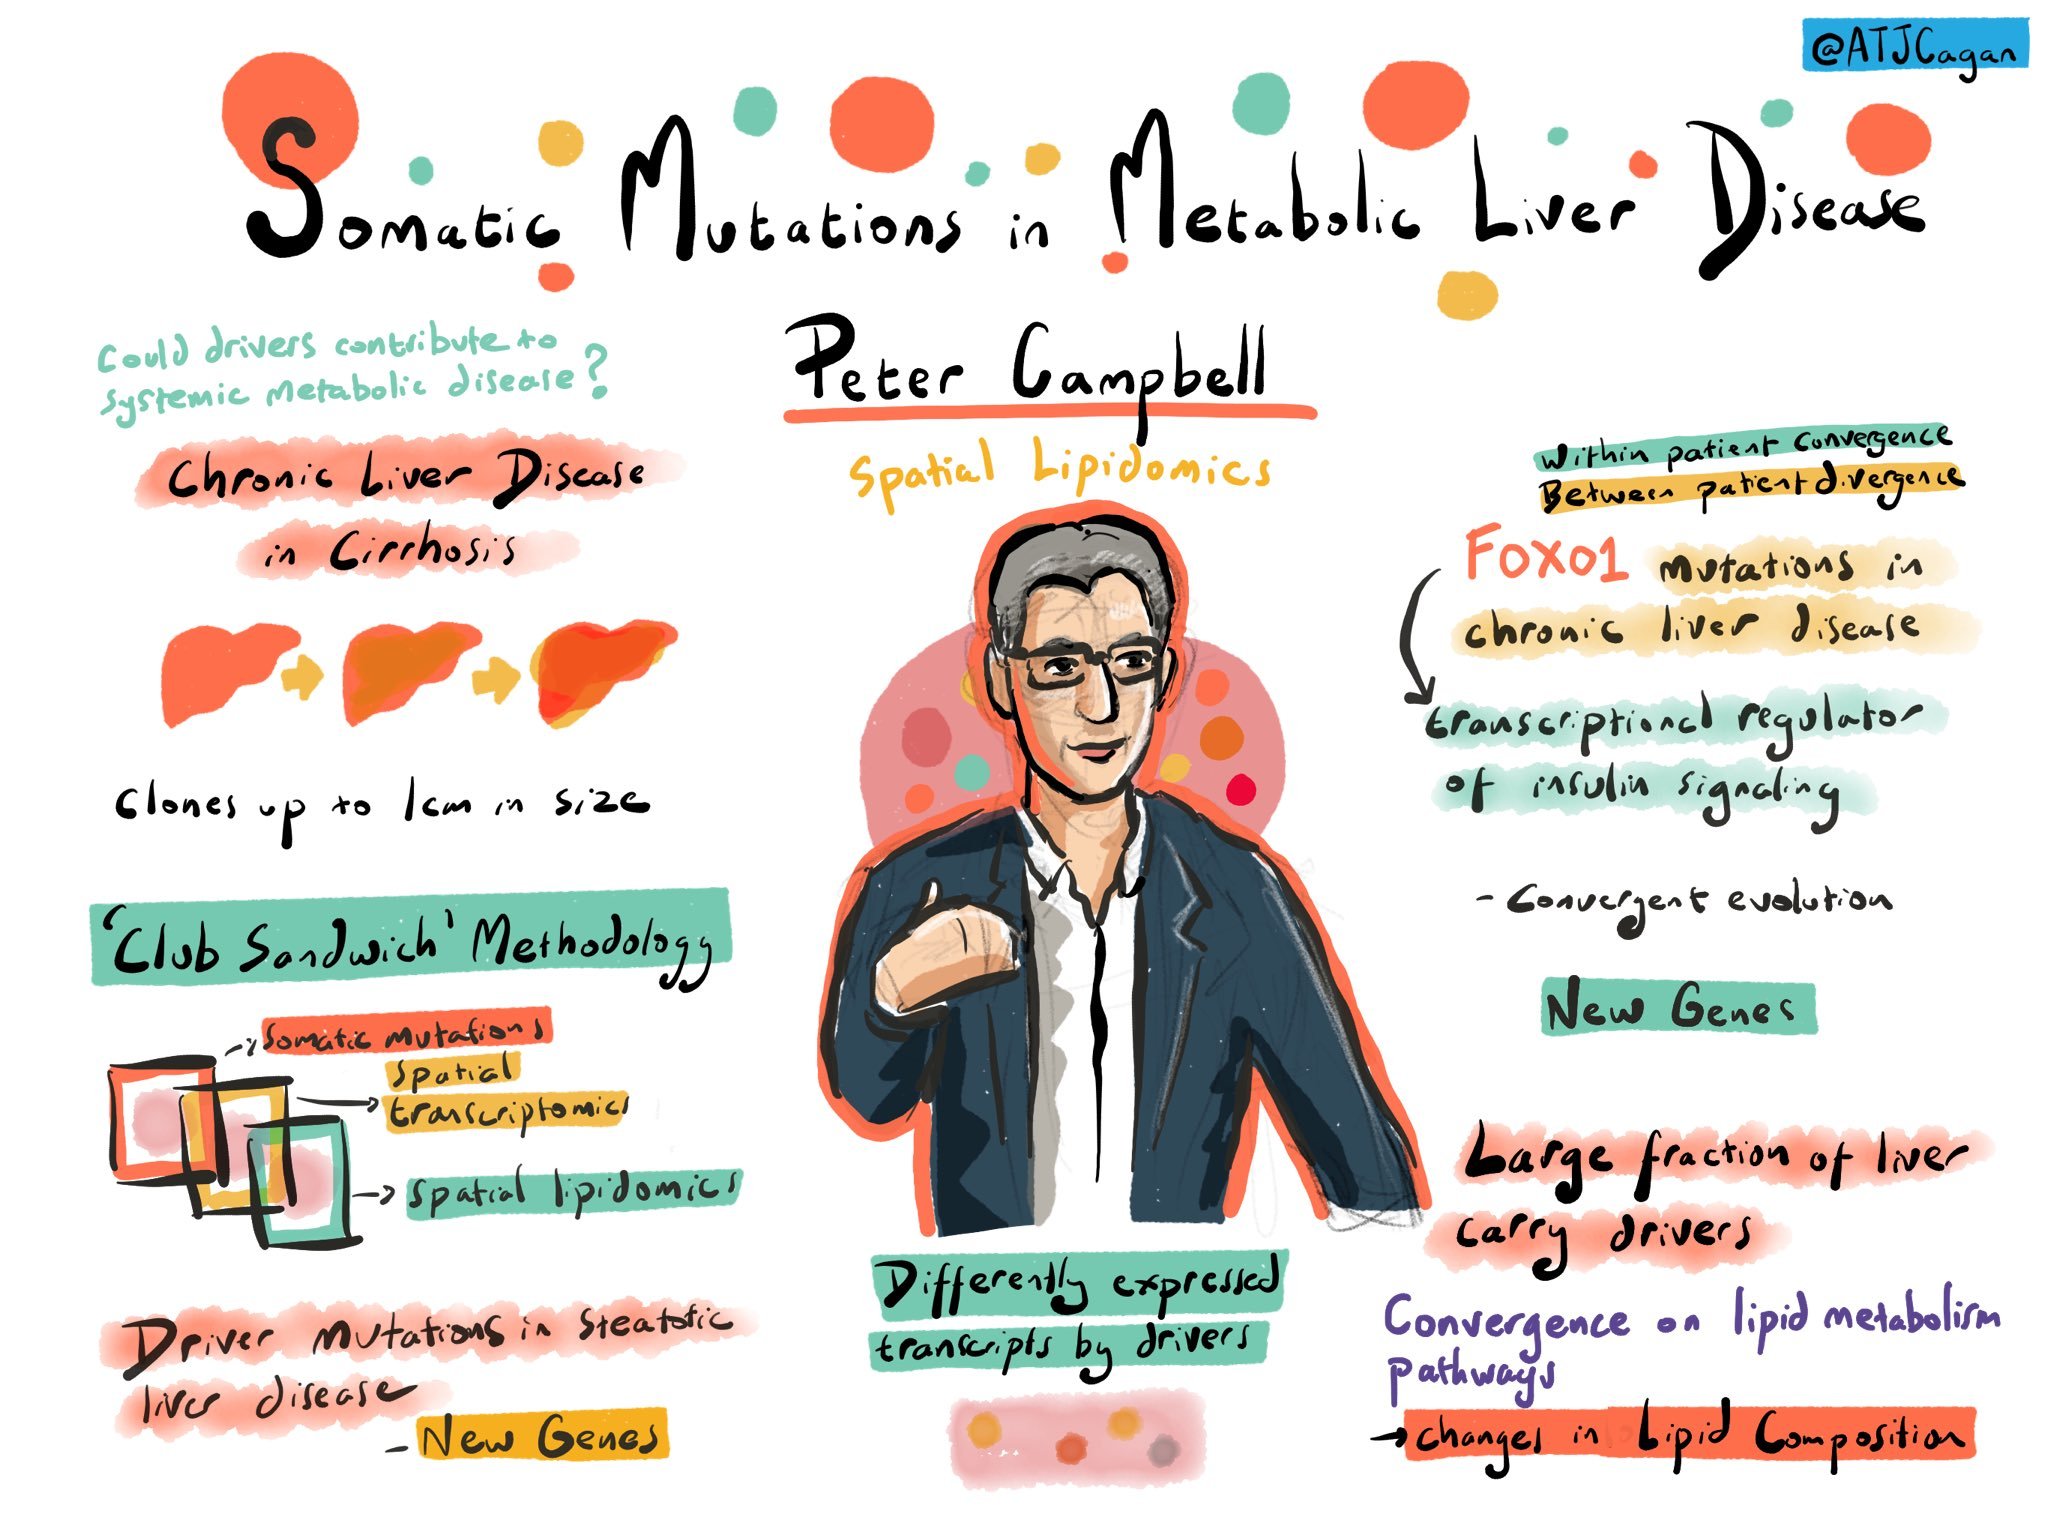 @ATJCagan
Somatic Mutations in Metabolic Liver Disease
Peter Campbell
Spatial Lipidomics
Could drivers contribute to
systemic metabolic disease?
Chronic Liver Disease
in Cirrhosis
Clones up to 1cm in size
'Club Sandwich' Methodology
Somatic mutations
Spatial
transcriptomics
Spatial lipidomics
Driver mutations in steatotic
liver disease
- New Genes
Differently expressed
transcripts by drivers
Within patient convergence
Between patient divergence
FOXO1 mutations in
chronic liver disease
transcriptional regulator
of insulin signaling
- Convergent evolution
New Genes
Large fraction of liver
carry drivers
Convergence on lipid metabolism
pathways
→ changes in Lipid Composition